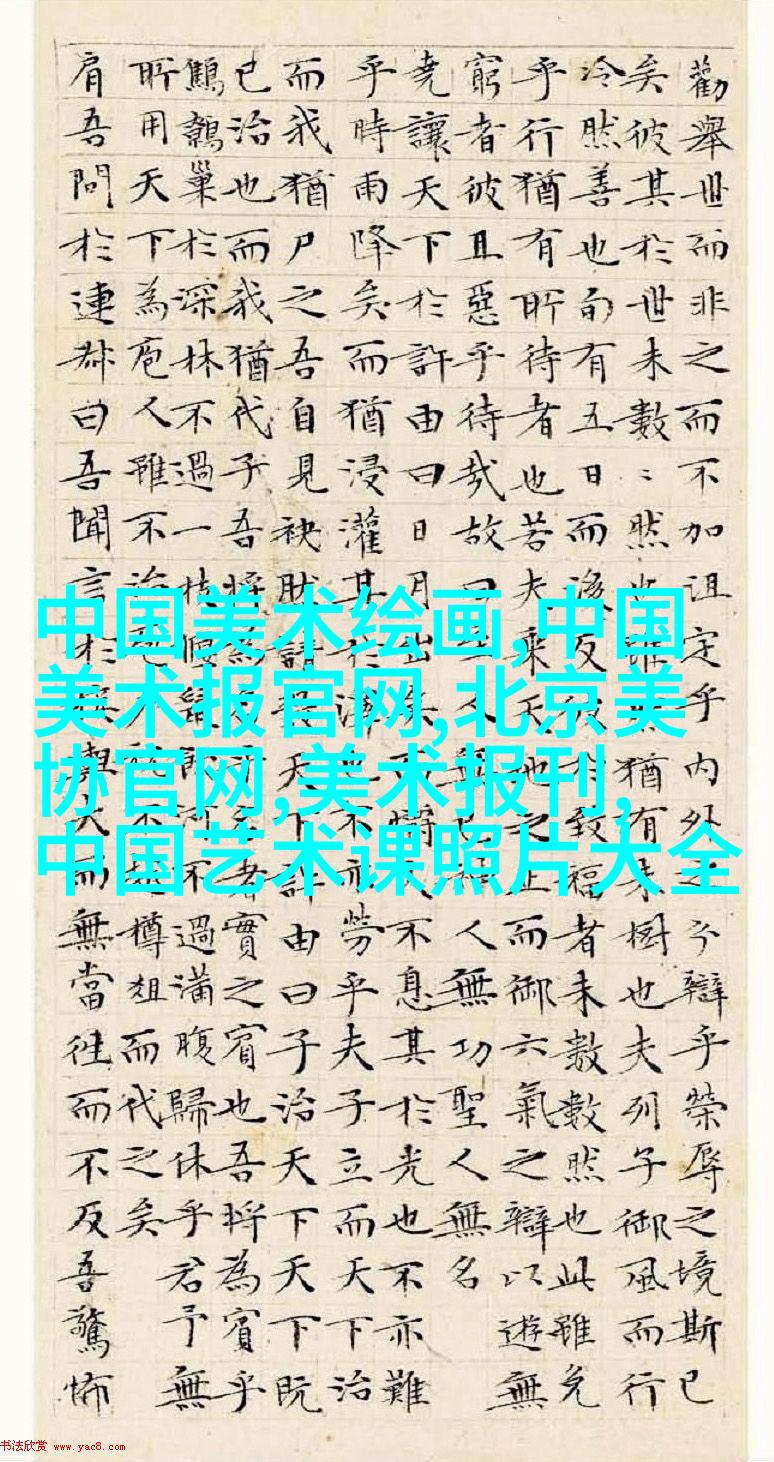 勸舉世而非之而不加沮定乎内外之分辯乎榮辱之境斯已
矣彼其於世未數〻然也雖然猶有未樹也夫列子御風而行
冷然善也旬有五日〻而後反彼於致福者未數數然也此雖免
乎行猶有所待者也若夫乘天地之正而御六氣之辯以遊無
窮者彼且惡乎待哉故曰至人無己神人無功聖人無名
堯讓天下於許由曰日月出矣而爝火不息其於光也不亦難
乎時雨降矣而猶浸灌其於澤也不亦勞乎夫子立而天下治
而我猶尸之吾自見缺然請致天下許由曰子治天下天下既
已治也而我猶代子吾將為名乎名者實之賓也吾將為賓乎
鷦鷯巢於深林不過一枝偃鼠飲河不過滿腹歸休乎君予無
所用天下為庖人雖不治庖尸祝不越樽俎而代之矣
肩吾問於連叔曰吾聞言於接輿大而無當往而不反吾驚怖
中国美术绘画,中国
美术报官网,北京美
协官网,美术报刊,
中国艺术课照片大全
书法欣赏 www.yac8.com